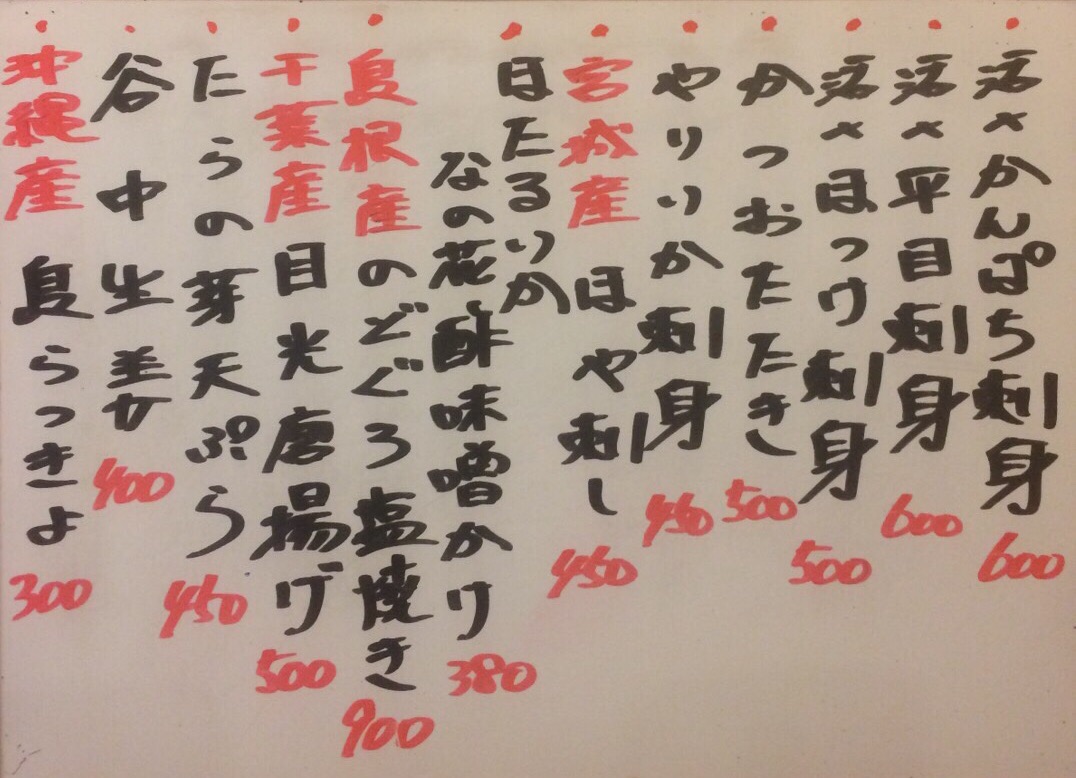 活〆かんぱち刺身 600
活〆平目刺身 600
活〆ほっけ刺身 500
かつおたたき 500
やりいか刺身 450
宮城産 ほや刺し 450
ほたるいか
なの花酢味噌かけ 380
島根産のどぐろ塩焼き 900
千葉産 目光唐揚げ 500
たらの芽天ぷら 450
谷中生姜 400
沖縄産 島らっきょ 300